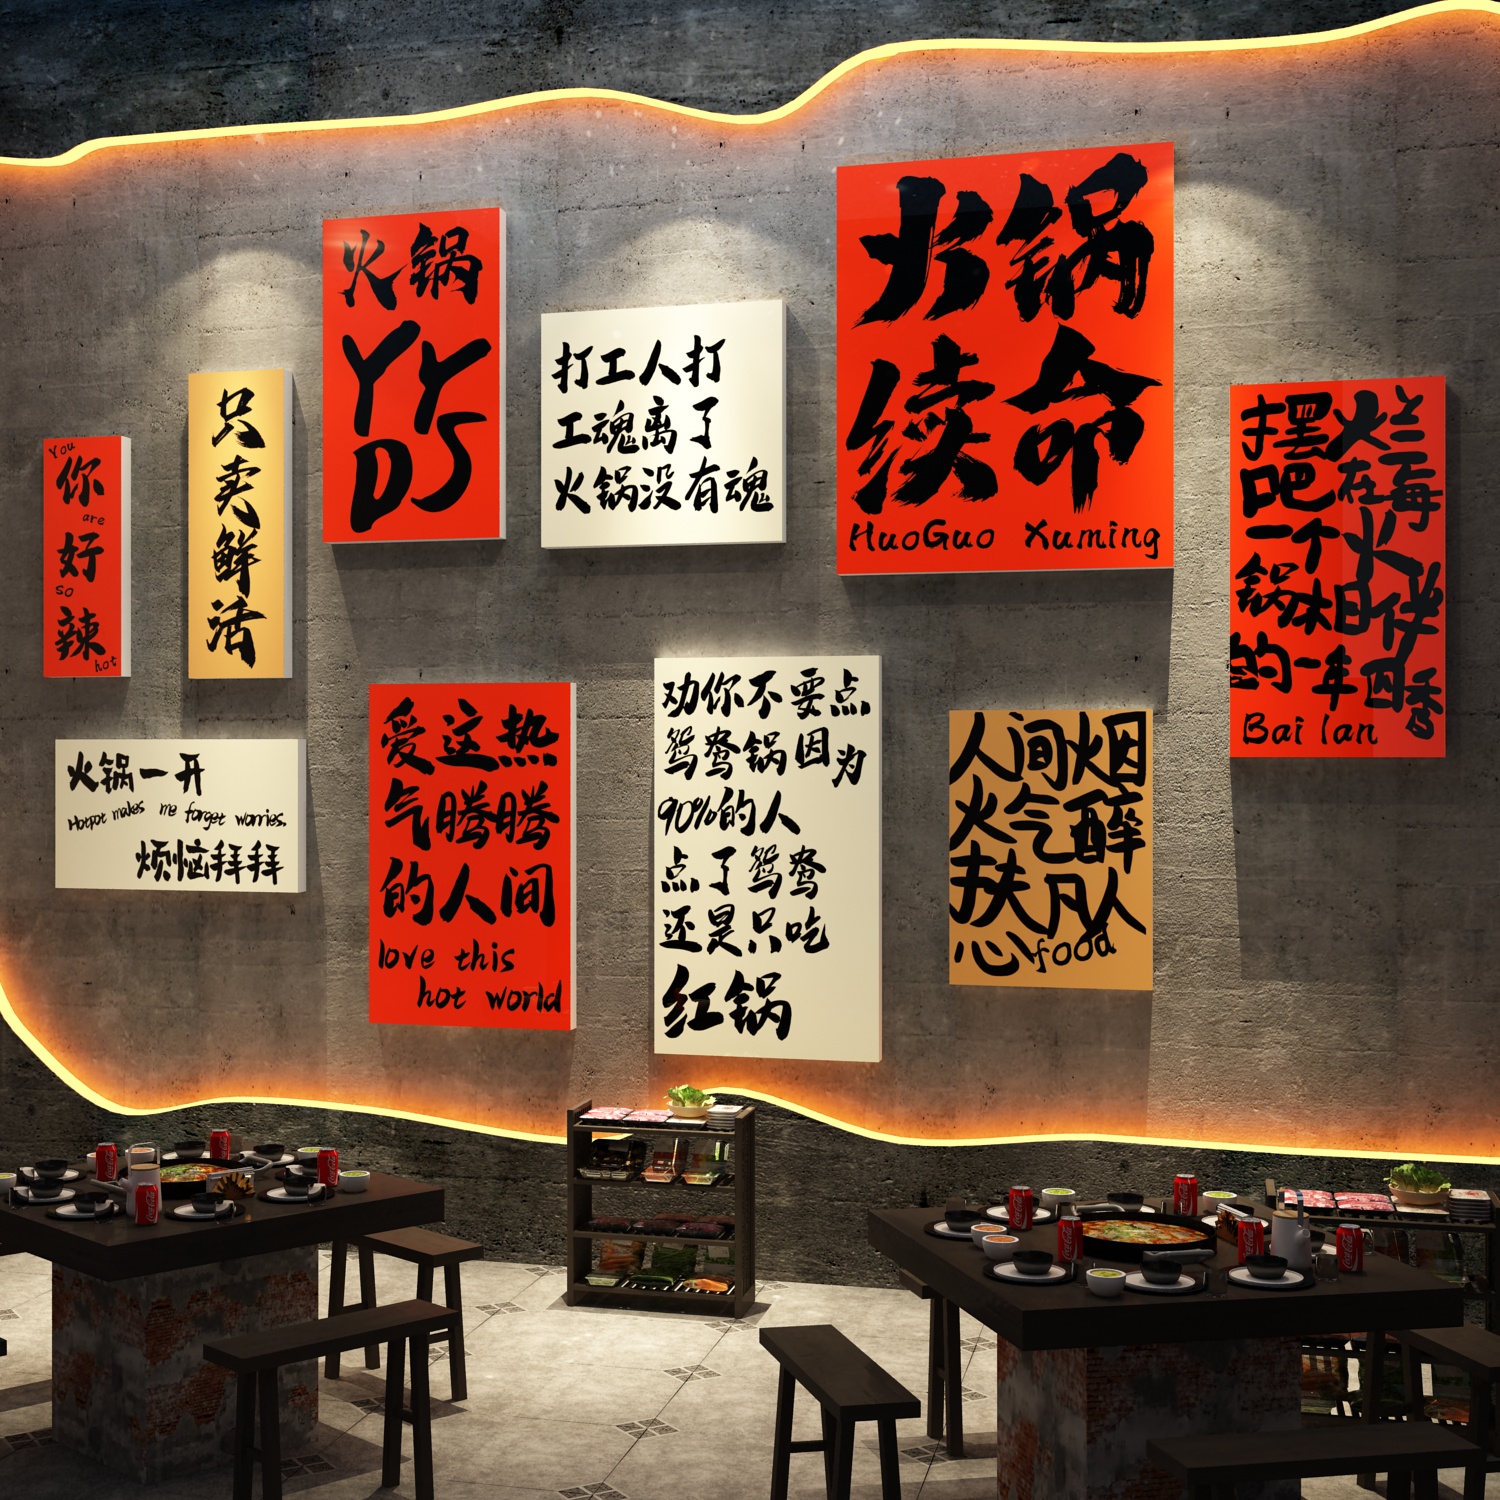 You
你
are
好
so
辣
hot
只
卖
鲜
活
火锅
YY
DS
打工人打
工魂离了
火锅没有魂
火锅
续命
HuoGuo Xuming
摆烂
吧在每
一个火
锅相伴
的一年四季
Bai lan
火锅一开
Hotpot makes me forget worries.
烦恼拜拜
爱这热
气腾腾
的人间
love this
hot world
劝你不要点
鸳鸯锅因为
90%的人
点了鸳鸯
还是只吃
红锅
人间烟
火气醉
扶凡人
心food
Coca-Cola
Coca-Cola
Coca-Cola
Coca-Cola